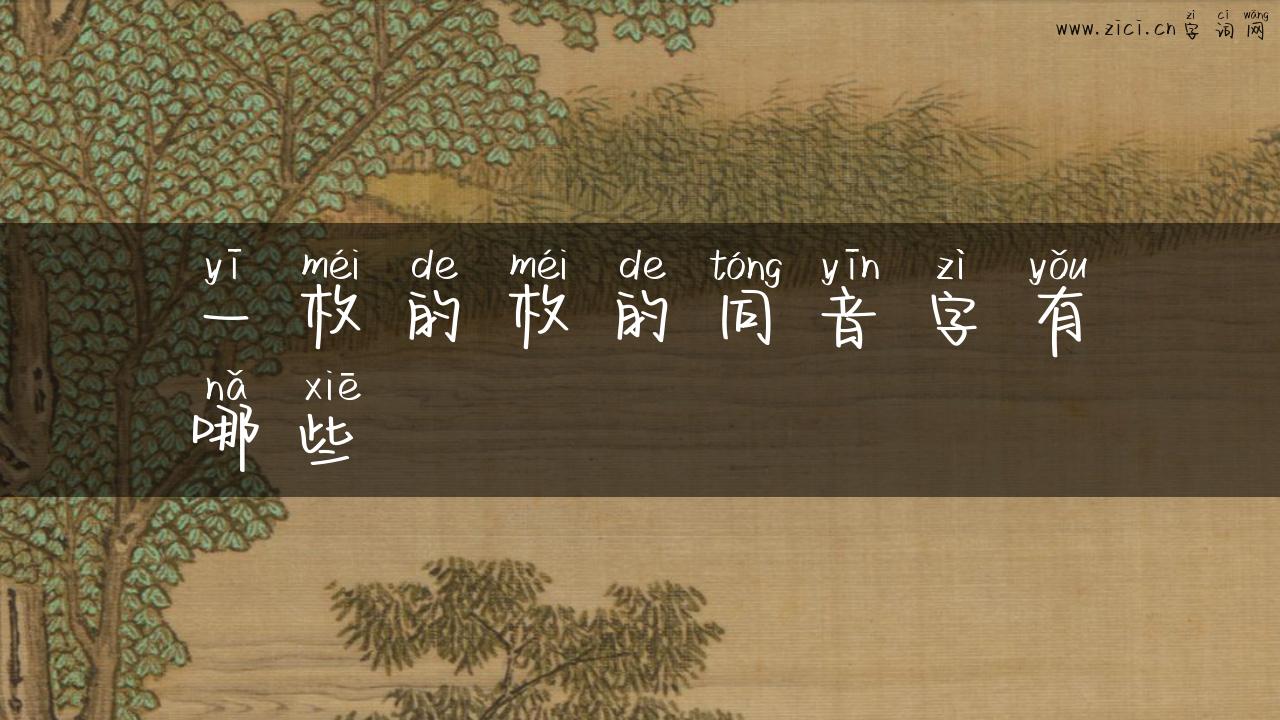 zì cí wǎng
www.zici.cn字词网
yī méi de méi de tóng yīn zì yǒu
一枚的枚的同音字有
nǎ xiē
哪些